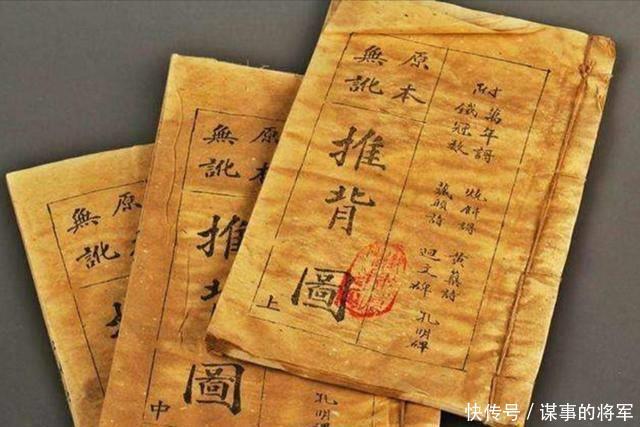 附
萬年謌 燒餅謌 黃蘗詩
鐵冠數 藏頭詩 迴文碑 孔明碑
原本
無訛
推背圖
上
原本
無訛
推背圖
中
孔明碑
原本
無訛
快传号／谋事的将军